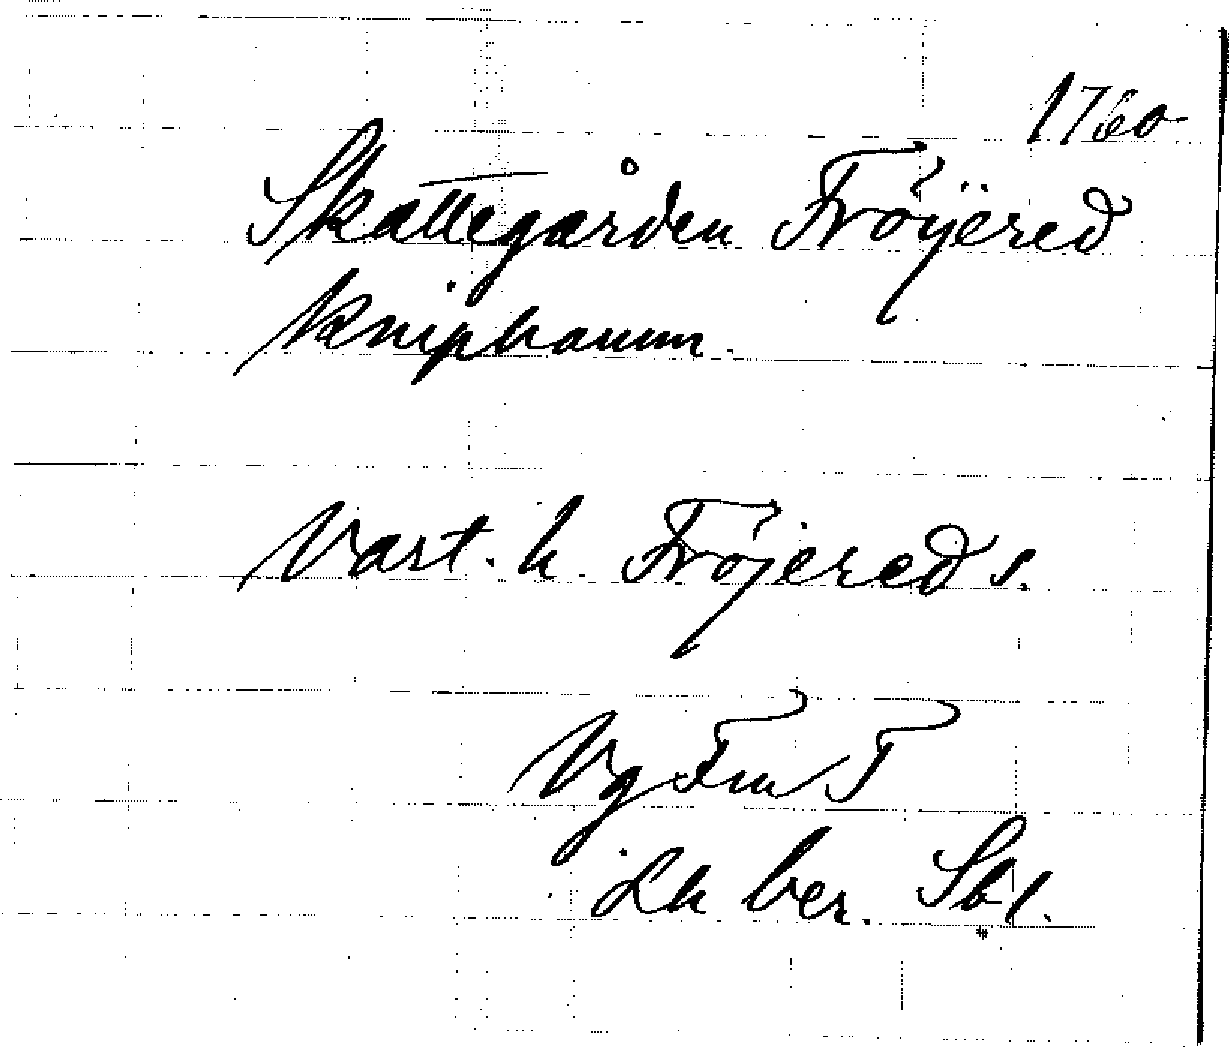 1760
Skattegården Fröÿered
Kniphamm.
Vart. h. Fröjered s.
Vg Fm T
Lh ber. Sbl.